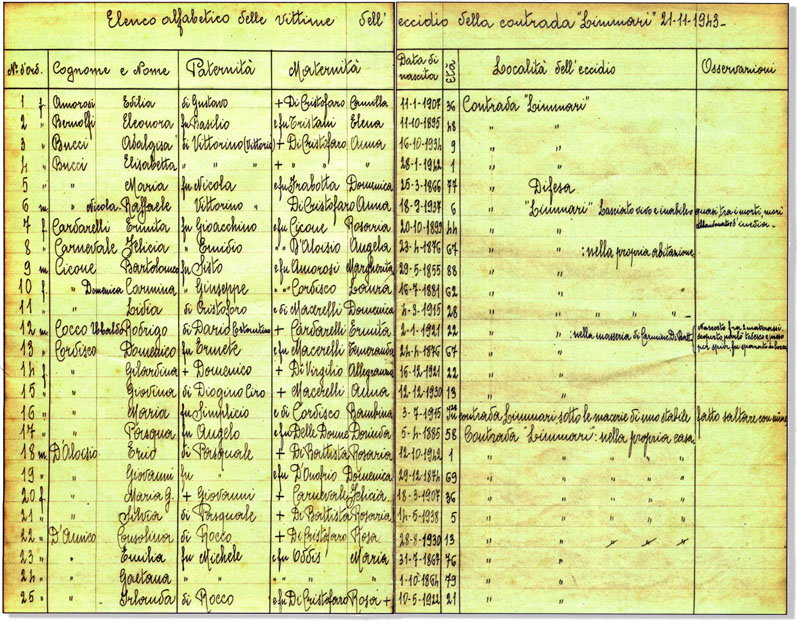 Elenco alfabetico delle vittime dell' eccidio della contrada "Limmari" 21-11-1943-
N° d'ord. Cognome e Nome Paternità Maternità Data di nascita Età Località dell'eccidio Osservazioni
1 f Amorosi Edilia di Gustavo + Di Cristofaro Camilla 11-1-1907 36 Contrada "Limmari"
2 " Bernolfi Eleonora fu Basilio e fu Tristani Elena 11-10-1895 48 " "
3 " Bucci Adalgisa di Vittorino (Vittorio) + Di Cristofaro Anna 16-10-1934 9 " "
4 " Bucci Elisabetta " " " + " " 28-1-1942 1 " "
5 " " Maria fu Nicola e fu Frabotta Domenica 25-3-1866 77 " Difesa
6 m " Nicola Raffaele " Vittorino Di Cristofaro Anna 18-9-1937 6 " "Limmari" Lasciato vivo e inabile quasi tra i morti, morì
7 f Cardarelli Ermita fu Gioacchino e fu Cicone Rosaria 20-10-1899 44 " "
8 " Carnevale Felicia " Emidio " " D'Aloisio Angela 23-4-1876 67 " " : nella propria abitazione
9 m Cicone Bartolomeo fu Sisto e fu Amorosi Margherita 29-5-1855 88 " "
10 f " Domenica Carmina " Giuseppe " " Cordisco Laura 16-7-1881 62 " "
11 " " Lidia di Cristoforo e di Macerelli Domenica 4-3-1915 28 " " " " "
12 m Cocco Ubbaldo Rodrigo di Dario Costantino + Cardarelli Ermita 2-1-1921 22 " " : nella masseria di Carmine Di
13 " Cordisco Domenico fu Ermete e fu Macerelli Esmeralda 24-4-1876 67 " "
14 f " Gilardina + Domenico + Di Virgilio Allegranza 16-12-1921 22 " "
15 " " Giovina di Diogino Ciro + Macerelli Anna 12-12-1930 13 " "
16 " " Maria fu Simplicio e di Cordisco Bambina 3-7-1915 In contrada Limmari sotto le macerie di uno stabile fatto saltare con mine
17 " " Pasqua fu Angelo e fu Delle Donne Dorinda 5-4-1885 58 Contrada "Limmari": nella propria casa
18 m D'Aloisio Erio di Pasquale + Di Battista Rosaria 12-10-1942 1 " " " " "
19 " " Giovanni fu " e fu D'Onofrio Domenica 29-12-1874 69 " " " " "
20 f " Maria G. + Giovanni + Carnevale Felicia 18-3-1907 36 " " " " "
21 " " Silvia di Pasquale + Di Battista Rosaria 14-5-1938 5 " " " " "
22 " D'Amico Consolina di Rocco + Di Cristofaro Rosa 28-8-1930 13 " " " " "
23 " " Emilia fu Michele e fu Oddis Maria 31-7-1867 76 " "
24 " " Gaetana " " " " " 1-10-1864 79 " "
25 " " Irlanda di Rocco e fu Di Cristofaro Rosa + 10-5-1922 21 " "